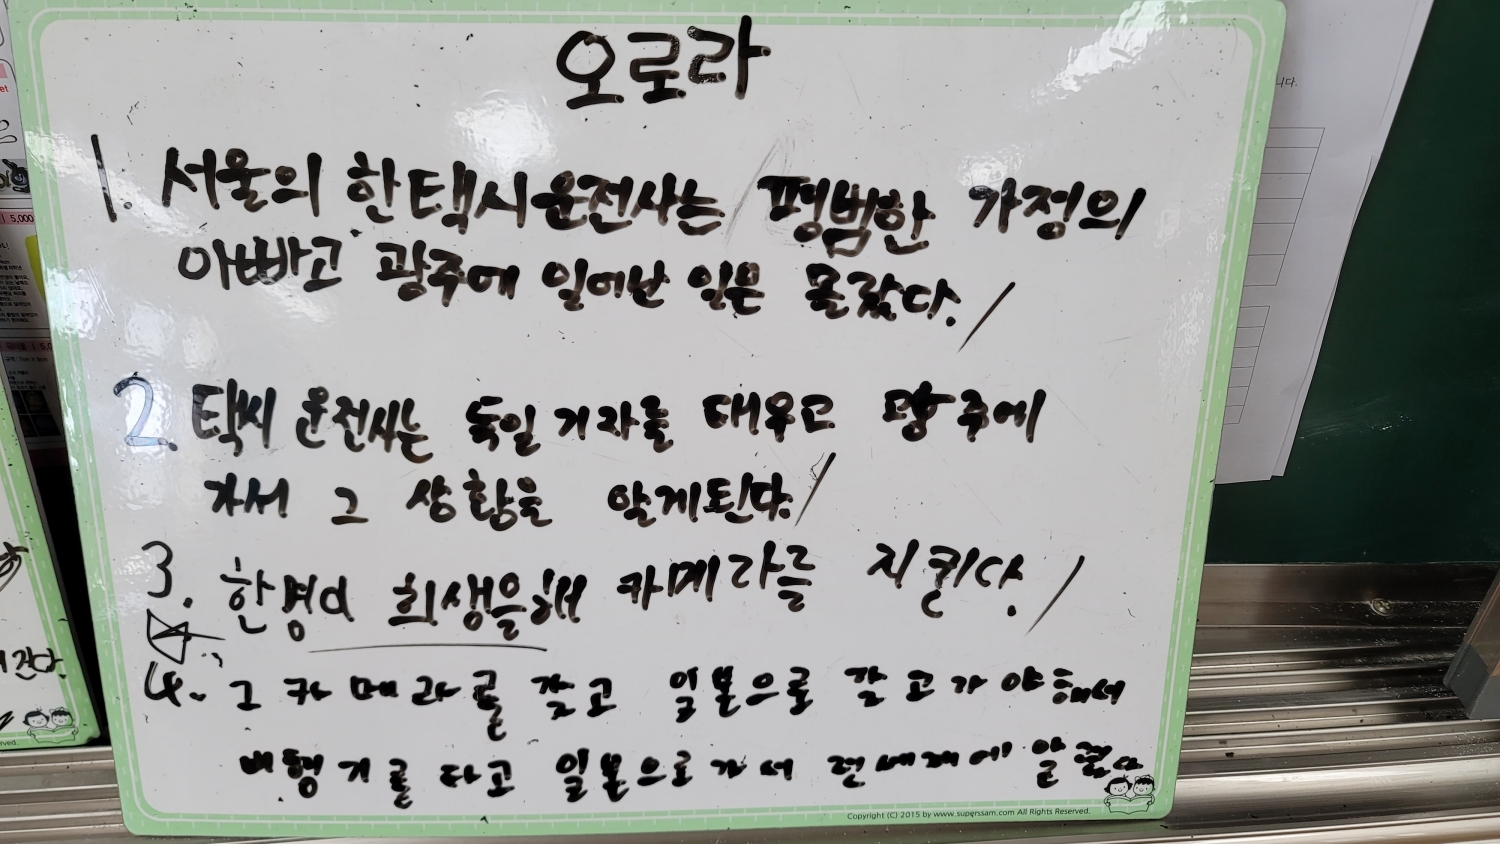 오로라
1. 서울의 한택시운전사는 평범한 가정의
아빠고 광주에 일어난 일은 몰랐다.
2. 택시 운전사는 독일 기자를 태우고 광주에
가서 그 상황을 알게된다.
3. 한명이 희생을해 카메라를 지킨다.
4. 그 카메라를 갖고 일본으로 갈고가야해서
비행기를 타고 일본으로가서 전세계에 알렸다
Copyright (C) 2015 by www.superssam.com All Rights Reserved.
니다.
5,000